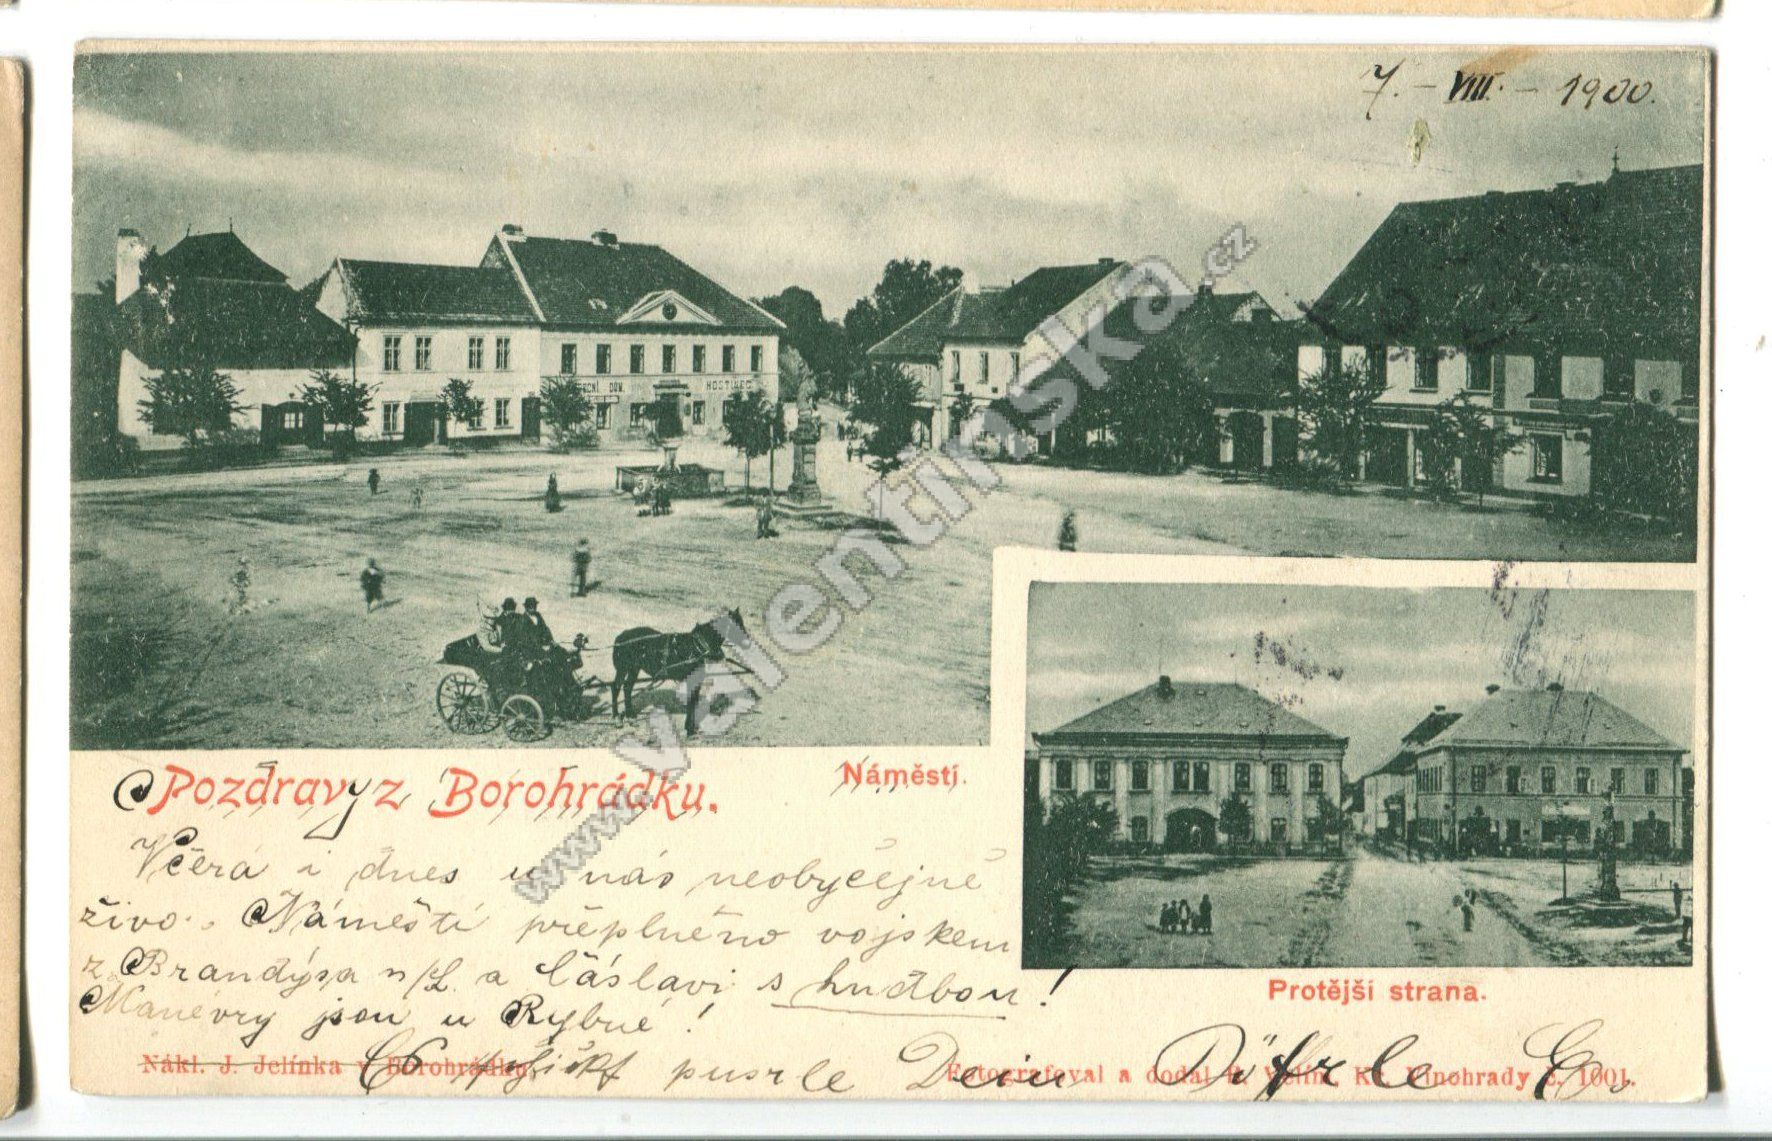 7. - VIII. - 1900.
HOSTINEC
www.valentinska.cz
Pozdravy z Borohrádku.
Náměstí.
Včera i dnes u nás neobyčejně
živo. Náměstí přeplněno vojskem
z Brandýsa n/L. a Čáslavi s hudbou!
Manévry jsou u Rybné!
Protější strana.
Nákl. J. Jelínka v Borohrádku.
Fotografoval a dodal Vinohrady č. 1001.